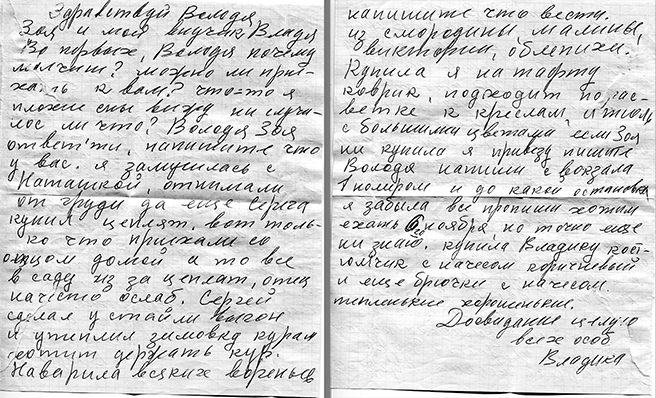 Здравствуй Володя
Зоя и мой внучик Владя
Во первых, Володя почему
молчит? можно ли при-
хать к вам? что-то я
плохие сны вижу ни случи-
лос ли что? Володя Зоя
ответти, напишите что
у вас. я замучилась с
Наташкой, отнимали
от груди да еще Серёга
купил цеплят, вот толь-
ко что приехали со
отцом домой а то все
в саду из за цеплат, отец
начисто ослаб. Сергей
сделал у стайли выгон
и утиплил зимовку курам
хотит держать кур.
Наварила всяких вореньев
напишите что вести.
из смородины, малины,
виктории, облепихи.
Купила я на тафту
коврик, подходит по рас-
ветке к креслам,
с большими цветами если Зоя
ни купила я привезу пишите
Володя напиши с вокзала
номиром и до какой остановки
я забыла все прописи хотим
ехать 6 ноября, но точно еще
ни знаю. купила Владику кост-
юмчик с начесом коричневый
и еще брючки с начесом
тепленькие хорошеньки.
Досвидание целую
всех особ
Владика